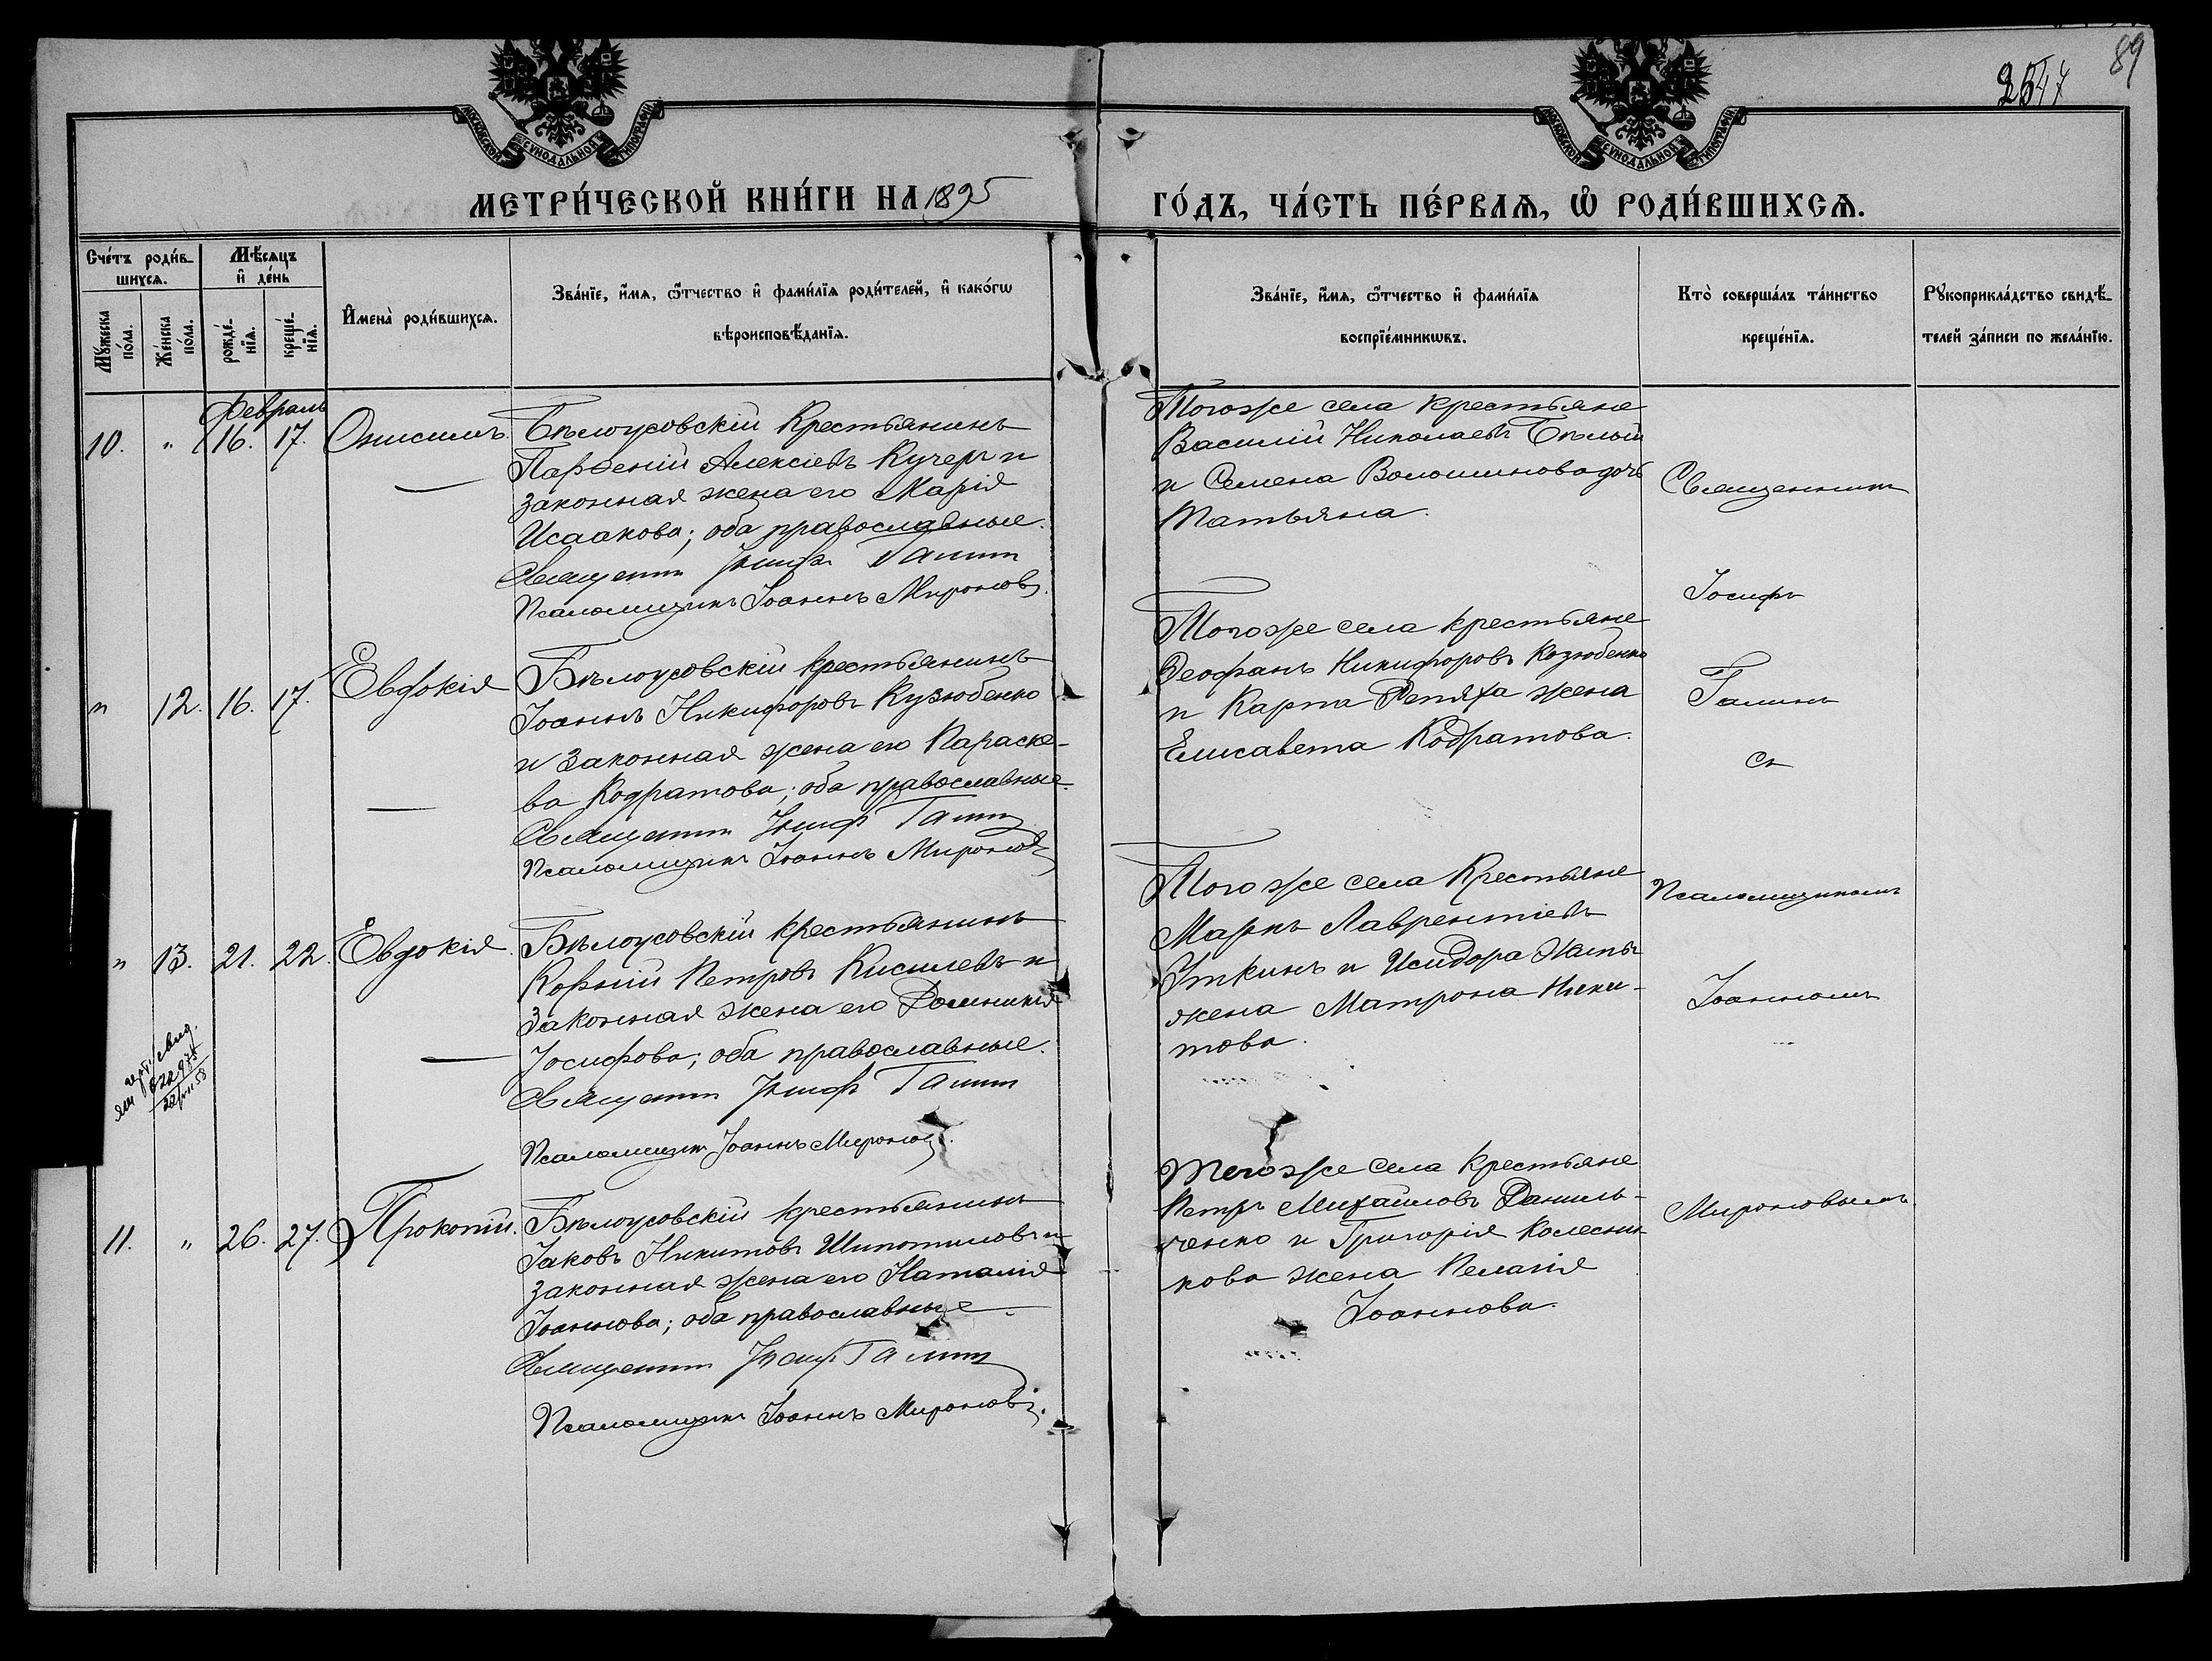 89
2547
МОСКОВСКОЙ СѴНОДАЛЬНОЙ ТИПОГРАФІИ
МОСКОВСКОЙ СѴНОДАЛЬНОЙ ТИПОГРАФІИ
МЕТРИ́ЧЕСКОЙ КНИ́ГИ НА 1895 ГО́ДЪ, ЧА́СТЬ ПЕ́РВАѦ, Ѡ҆ РОДИ́ВШИХСѦ.
Сче́тъ роди́вшихсѧ.
Мѣ́сѧцъ и҆ де́нь
Мꙋ́жеска по́ла.
Же́нска по́ла.
рожде́нїѧ.
креще́нїѧ.
И҆мена̀ роди́вшихсѧ.
Зва́нїе, и҆́мѧ, ѻ҆́тчество и҆ фами́лїѧ роди́телей, и҆ како́гѡ
вѣроисповѣ́данїѧ.
Зва́нїе, и҆́мѧ, ѻ҆́тчество и҆ фами́лїѧ
воспрїе́мникѡвъ.
Кто̀ соверша́лъ та́инство
креще́нїѧ.
Рꙋкоприкла́дство свидѣ́телей за́писи по жела́нїю.
Февраль
10. " 16. 17. Онисимъ.
Бѣлоусовскій Крестьянинъ
Парѳеній Алексіевъ Кучеръ и
законная жена его Марія
Исаакова; оба православные.
Священникъ Іосифъ Галинъ
Псаломщикъ Іоаннъ Мироновъ.
Тогоже села крестьяне
Василій Николаевъ Бѣлый
и Семена Волошинова дочь
Татьяна.
" 12. 16. 17. Евдокія
Бѣлоусовскій крестьянинъ
Іоаннъ Никифоровъ Кузюбенко
и законная жена его Параске-
ва Кодратова; оба православные.
Священникъ Іосифъ Галинъ
Псаломщикъ Іоаннъ Мироновъ
Тогоже села крестьяне
Ѳеофанъ Никифоровъ Козюбенко
и Карпа Репяха жена
Елисавета Кодратова.
" 13. 21. 22. Евдокія.
Бѣлоусовскій крестьянинъ
Корній Петровъ Кисилевъ и
законная жена его Домникія
Іосифова; оба православные.
Священникъ Іосифъ Галинъ
Псаломщикъ Іоаннъ Мироновъ.
Того же села Крестьяне
Маркъ Лаврентіевъ
Уткинъ и Исидора
жена Матрона Ники-
това.
11. " 26. 27. Прокопій.
Бѣлоусовскій крестьянинъ
Іаковъ Никитовъ Шипотиловъ и
законная жена его Наталія
Іоаннова; оба православные.
Священникъ Іосифъ Галинъ
Псаломщикъ Іоаннъ Мироновъ.
Тогоже села крестьяне
Петръ Михайловъ Даниль-
ченко и Григорія Колесни-
кова жена Пелагія
Іоаннова.
Священникъ
Іосифъ
Галинъ
съ
Псаломщикомъ
Іоанномъ
Мироновымъ